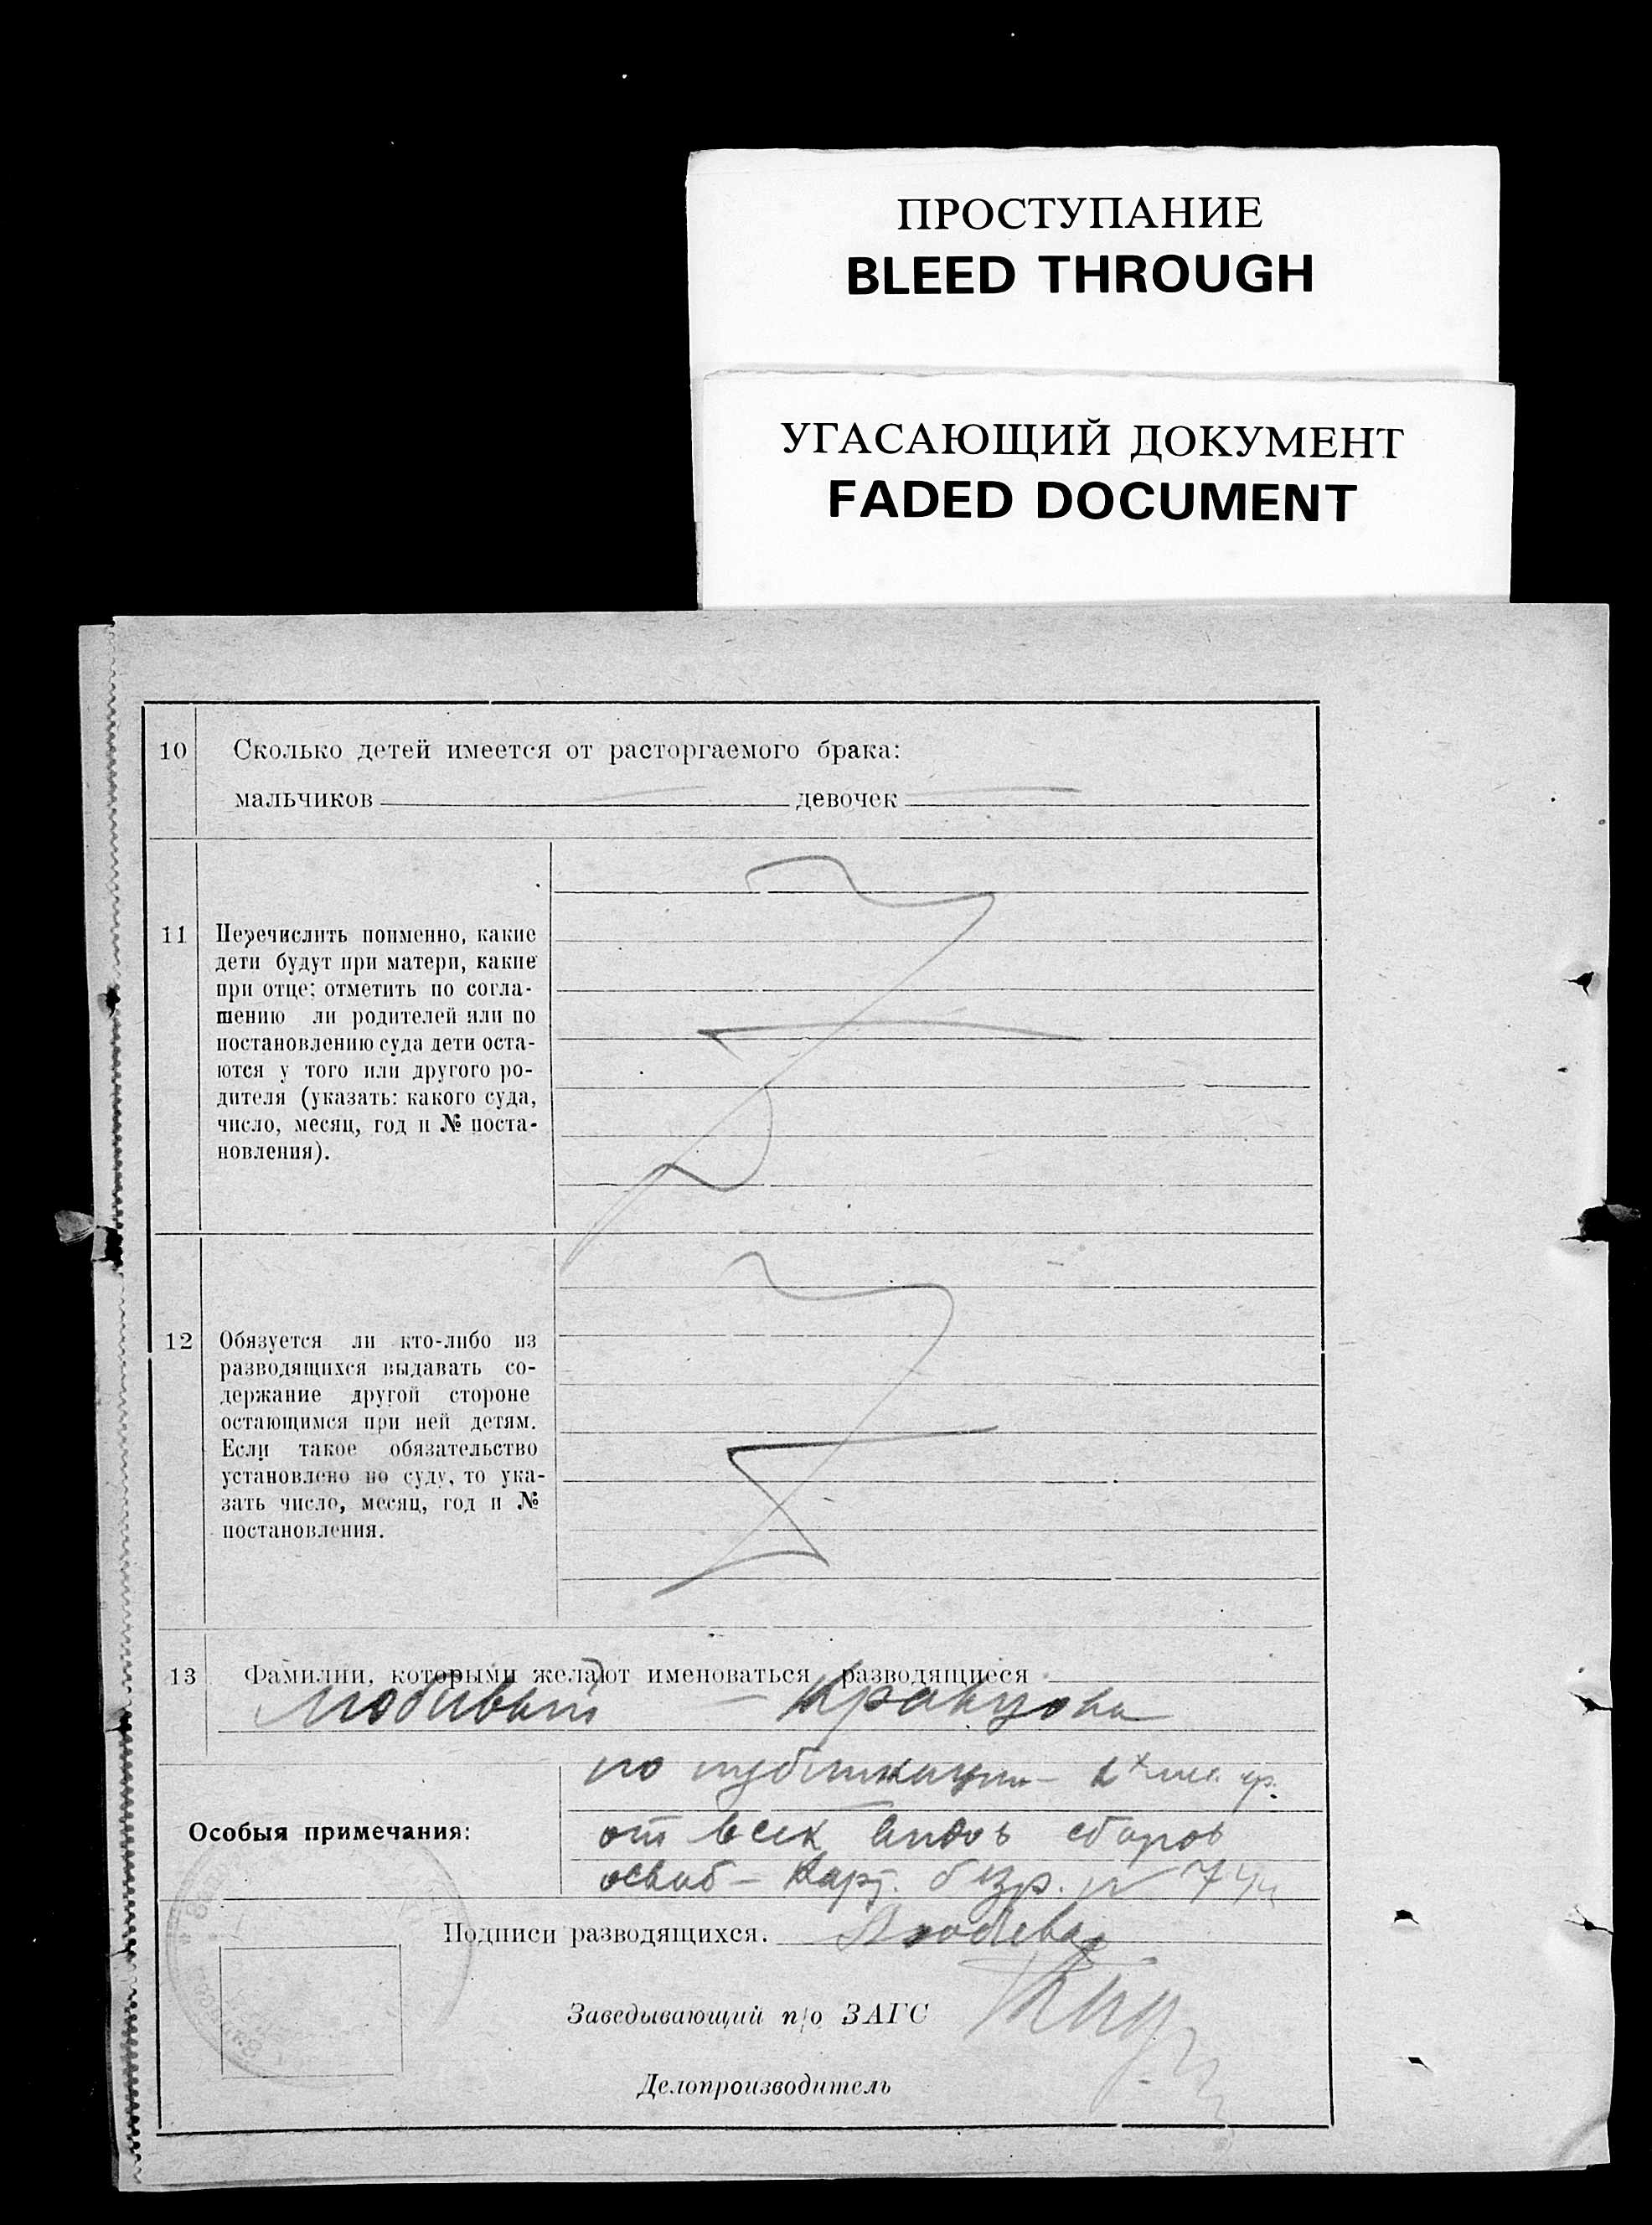 ПРОСТУПАНИЕ
BLEED THROUGH
УГАСАЮЩИЙ ДОКУМЕНТ
FADED DOCUMENT
10 Сколько детей имеется от расторгаемого брака:
мальчиков девочек
11 Перечислить поименно, какие
дети будут при матери, какие
при отце; отметить по согла-
шению ли родителей или по
постановлению суда дети оста-
ются у того или другого ро-
дителя (указать: какого суда,
число, месяц, год и № поста-
новления).
12 Обязуется ли кто-либо из
разводящихся выдавать со-
держание другой стороне
остающимся при ней детям.
Если такое обязательство
установлено по суду, то ука-
зать число, месяц, год и №
постановления.
13 Фамилии, которыми желают именоваться разводящиеся
— Кравцова
по публикации —
Особыя примечания:
от всех видов сборов
освоб — Карт. безр. №
Подписи разводящихся.
Заведывающий п/о ЗАГС
Делопроизводитель